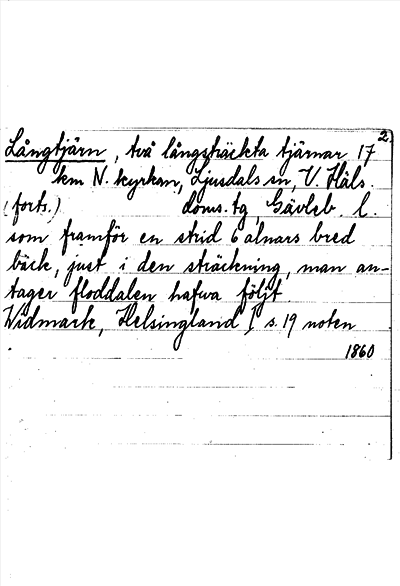 2
Långtjärn, två långsträckta tjärnar 17
km N. kyrkan, Ljusdals sn, V. Häls.
(forts.) doms. tg, Gävleb. l.
som framför en strid 6 alnars bred
bäck, just i den sträckning, man an-
tager floddalen hafwa följt
Widmark, Helsingland I s. 19 noten
1860